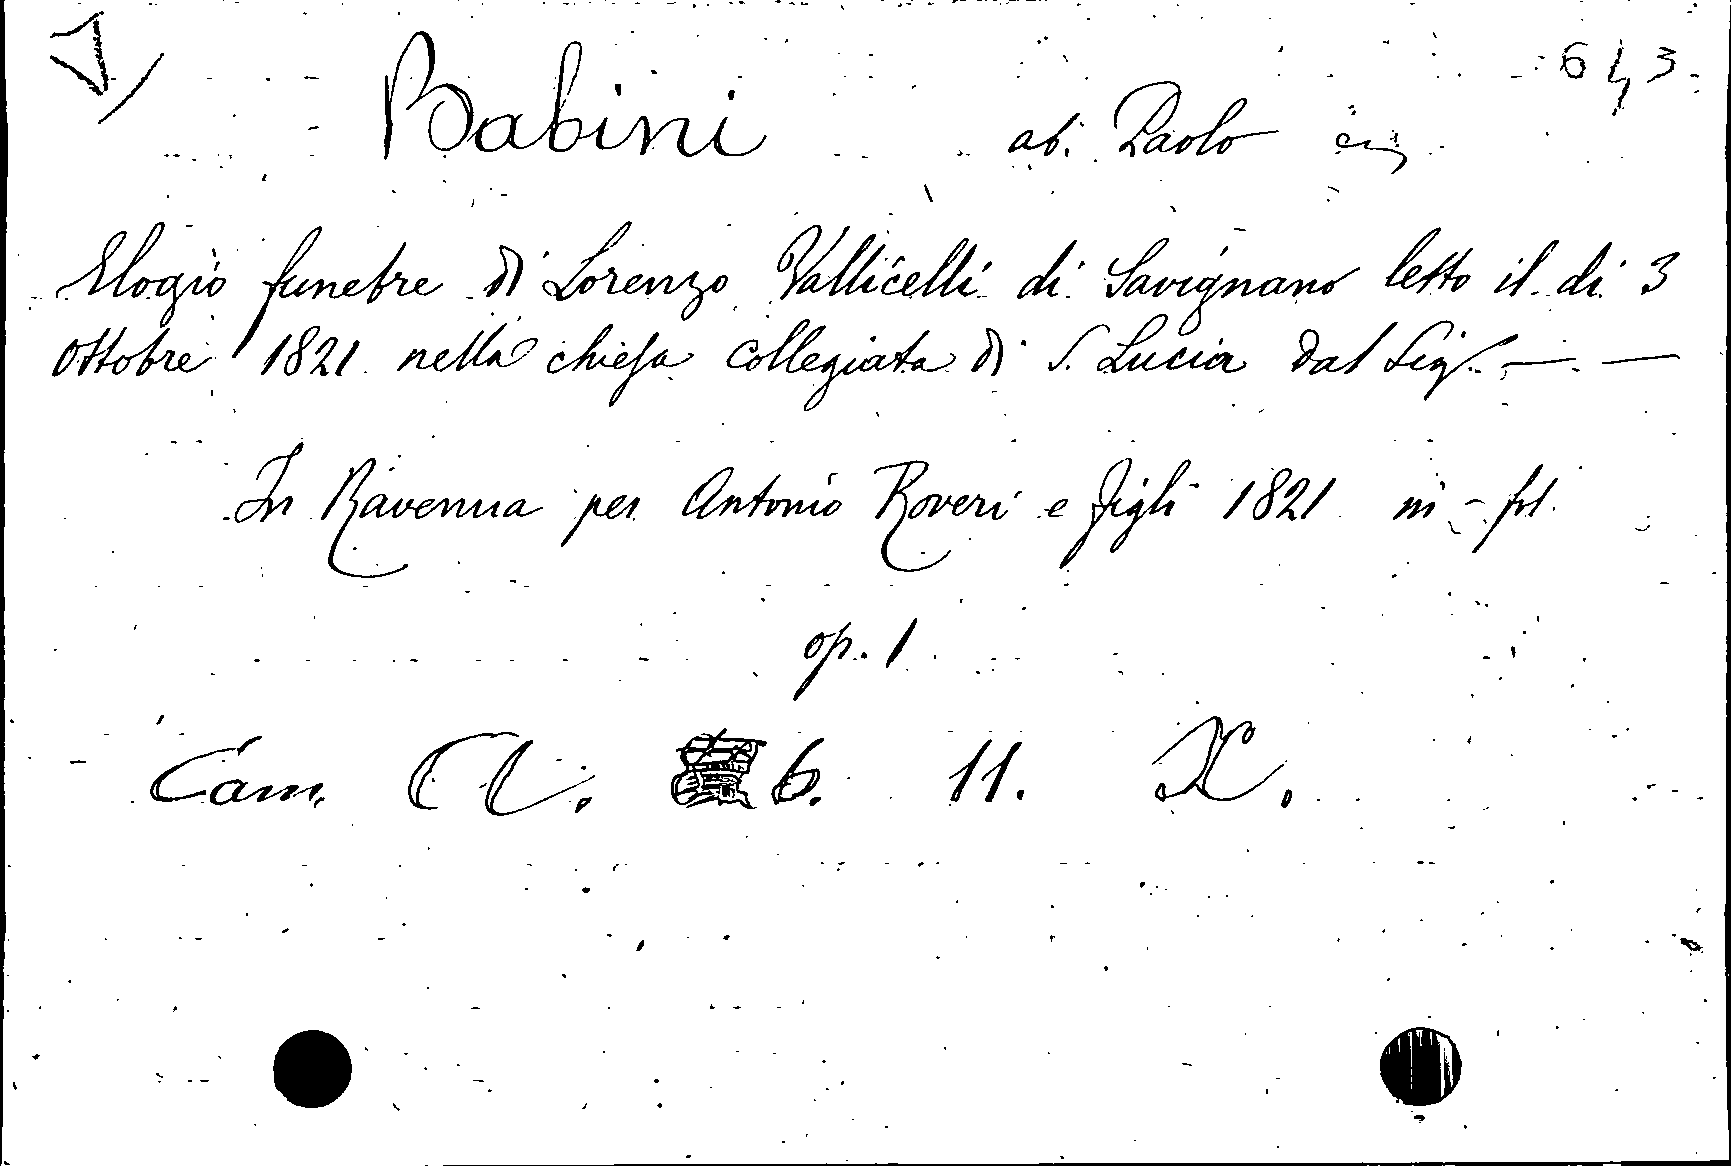 643
Babini ab. Paolo
Elogio funebre di Lorenzo Vallicelli di Savignano letto il di 3
Ottobre 1821 nella chiesa collegiata di S. Lucia dal Sig. — —
In Ravenna per Antonio Roveri e figli 1821 in-fol.
op. 1
Cam. 6. 11. X.